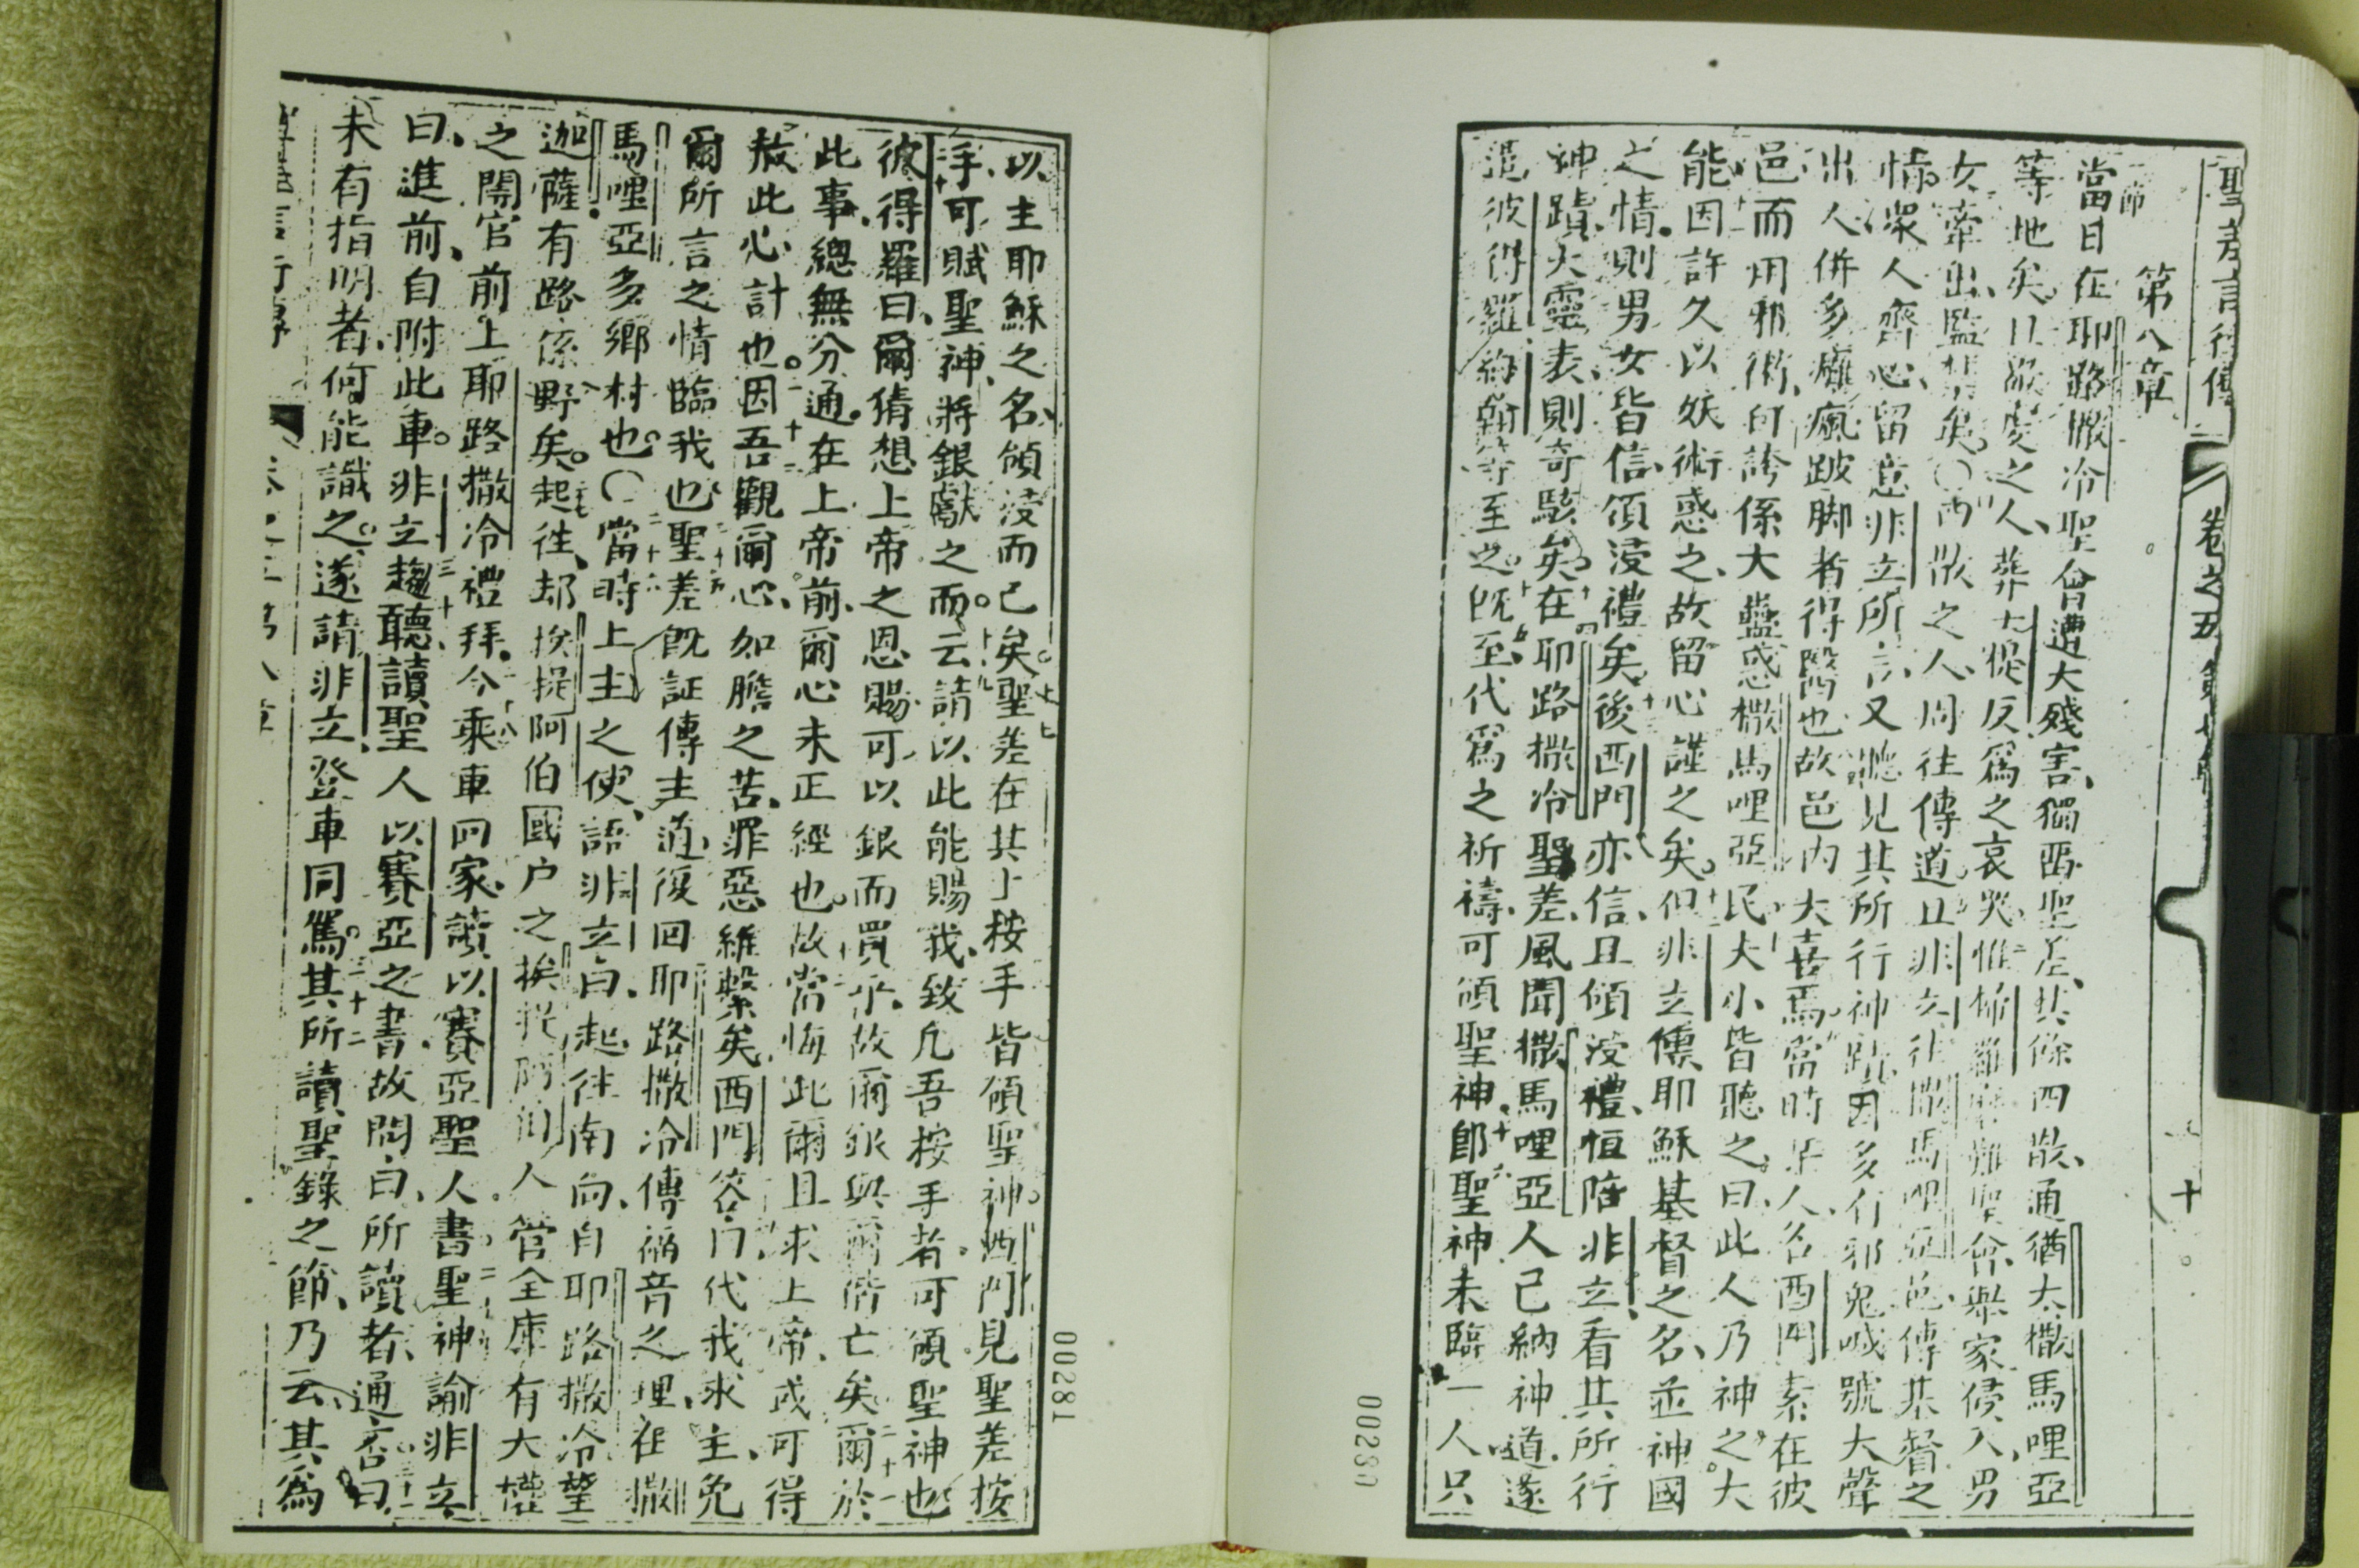 聖差言行傳 卷之五 第
十
第八章
節
當日在耶路撒冷聖會遭大殘害、獨西聖差、其餘四散、通猶大撒馬哩亞
等地矣、且之人、葬士提反、爲之哀哭、惟掃羅聖會、舉家侵入、男
女牽出、監禁矣。〇四散之人、周往傳道、且非立往撒馬哩亞邑、傳基督之
情、衆人齊心、留意非立所言、又聽見其所行神跡、因多有邪鬼喊號大聲
出人、併多癱瘋跛腳者得醫也、故邑內大喜焉、當時有人名西門、素在彼
邑而用邪術、自誇係大、蠱惑撒馬哩亞民、大小皆聽之、曰、此人乃神之大
能、因許久以妖術惑之、故留心謹之矣。但非立傳耶穌基督之名、並神國
之情、則男女皆信、領浸禮矣、後西門亦信、且領浸禮、恒陪非立、看其所行
神蹟大靈表、則奇駭矣、在耶路撒冷聖差、風聞撒馬哩亞人已納神道、遂
遣彼得羅約翰等至之。既至、代爲之祈禱、可領聖神、十六節聖神未臨一人、只
00280
以主耶穌之名領浸而已矣。十七聖差在其上按手、皆領聖神。西門見聖差按
手、可賦聖神、將銀獻之、而云、十九請以此能賜我、致凡吾按手者、可領聖神也、
彼得羅曰、爾猜想上帝之恩賜、可以銀而買乎、故爾銀與爾偕亡矣、爾於二十一
此事、總無分通、在上帝前、爾心未正經也。故當悔此爾、且求上帝、或可得
赦此心計也。因吾觀爾心、如膽之苦、罪惡維繫矣、西門答曰、代我求主、免
爾所言之情臨我也、二十五聖差既証傳主道、復囘耶路撒冷、傳福音之理、在撒
馬哩亞多鄉村也。〇二十六當時上主之使、語非立曰、起往南向、自耶路撒冷望
迦薩有路、係野矣。起往、却挨提阿伯國户之挨提阿伯人、管全庫、有大權
之閹官、前上耶路撒冷禮拜、今乘車囘家、讀以賽亞聖人書。聖神諭非立
曰、進前、自附此車。三十非立趨聽、讀聖人以賽亞之書、故問曰、所讀者、通否、三十一曰、
未有指明者、何能識之。遂請非立登車同駕。三十二其所讀聖錄之節、乃云、其爲
00281